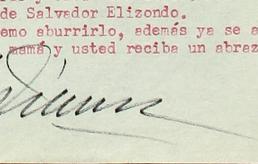 de Salvador Elizondo.
emo aburrirlo, además ya se a
mamá y usted reciba un abraz